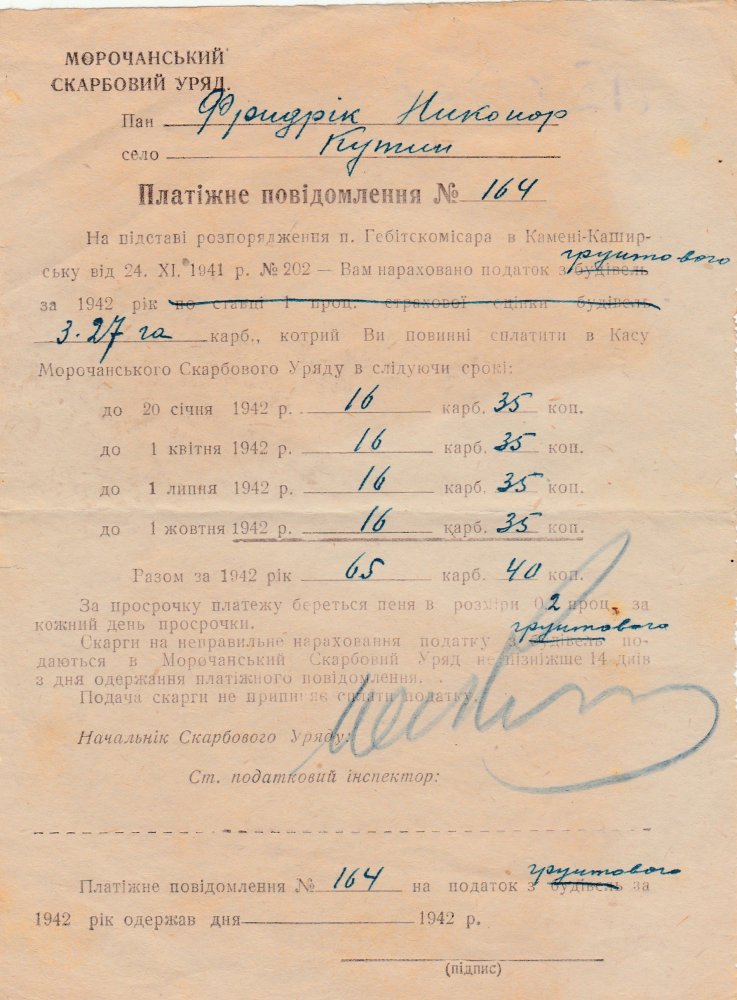 МОРОЧАНСЬКИЙ
СКАРБОВИЙ УРЯД.
Пан Фридрік Никонор
село Кутин
Платіжне повідомлення № 164
На підставі розпорядження п. Гебітскомісара в Камені-Кашир-
ську від 24. XI. 1941 р. № 202 — Вам нараховано податок з будівель грунтового
за 1942 рік по ставці 1 проц. страхової оцінки будівель
3.27 га карб., котрий Ви повинні сплатити в Касу
Морочанського Скарбового Уряду в слідуючи срокі:
до 20 січня 1942 р. 16 карб. 35 коп.
до 1 квітня 1942 р. 16 карб. 35 коп.
до 1 липня 1942 р. 16 карб. 35 коп.
до 1 жовтня 1942 р. 16 карб. 35 коп.
Разом за 1942 рік 65 карб. 40 коп.
За просрочку платежу береться пеня в розміри 0,2 проц. за
кожний день просрочки.
грунтового
Скарги на неправильне нараховання податку з будівель по-
даються в Морочанський Скарбовий Уряд не пізніжше 14 днів
з дня одержання платіжного повідомлення.
Подача скарги не припиняє сплати податку.
Начальнік Скарбового Уряду:
Ст. податковий інспектор:
грунтового
Платіжне повідомлення № 164 на податок з будівель за
1942 рік одержав дня 1942 р.
(підпис)